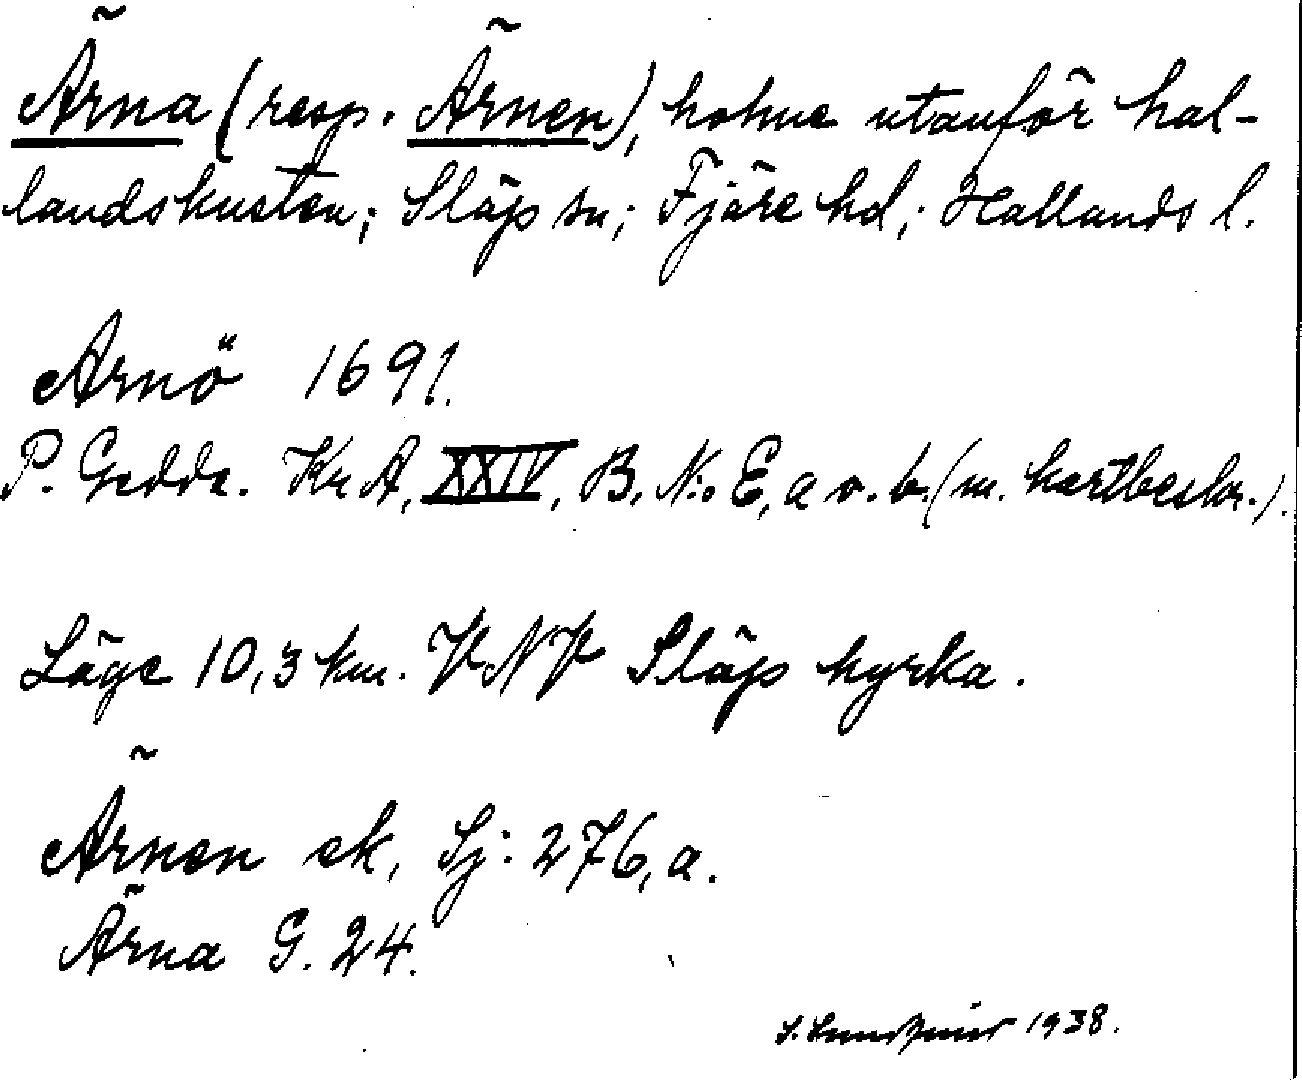 Ärna (resp. Ärnen), holme utanför hal-
landskusten; Släp sn; Fjäre hd; Hallands l.
Arnö 1691.
P. Gedda. KrA, XXIV, B, N:o E, a o. b. (m. kartbeskr.).
Läge 10,3 km. VNV Släps kyrka.
Ärnen ek, Sj: 276, a.
Ärna G. 24.
1938.